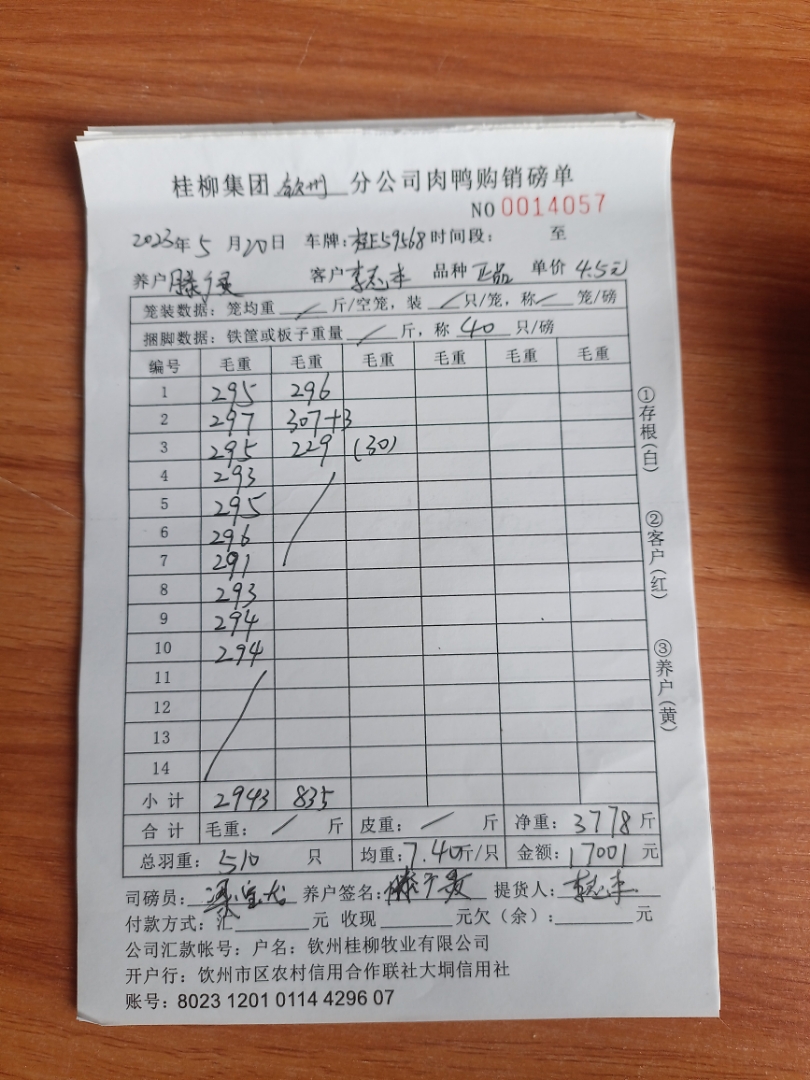 桂柳集团 钦州 分公司肉鸭购销磅单
NO 0014057
2023年 5 月 20 日 车牌: 桂E59568 时间段: 至
养户 客户 李志丰 品种 正品 单价 4.5元
笼装数据: 笼均重 / 斤/空笼, 装 / 只/笼, 称 / 笼/磅
捆脚数据: 铁筐或板子重量 / 斤, 称 40 只/磅
编号 毛重 毛重 毛重 毛重 毛重 毛重
1 295 296
2 297 307+3
3 295 229 (30)
4 293
5 295
6 296
7 291
8 293
9 294
10 294
11
12
13
14
小计 2943 835
合计 毛重: / 斤 皮重: / 斤 净重: 3778 斤
总羽重: 510 只 均重: 7.40斤/只 金额: 17001 元
司磅员: 养户签名: 提货人: 李志丰
付款方式: 汇 元 收现 元欠(余): 元
公司汇款帐号: 户名: 钦州桂柳牧业有限公司
开户行: 钦州市区农村信用合作联社大垌信用社
账号: 8023 1201 0114 4296 07
①存根(白)
②客户(红)
③养户(黄)